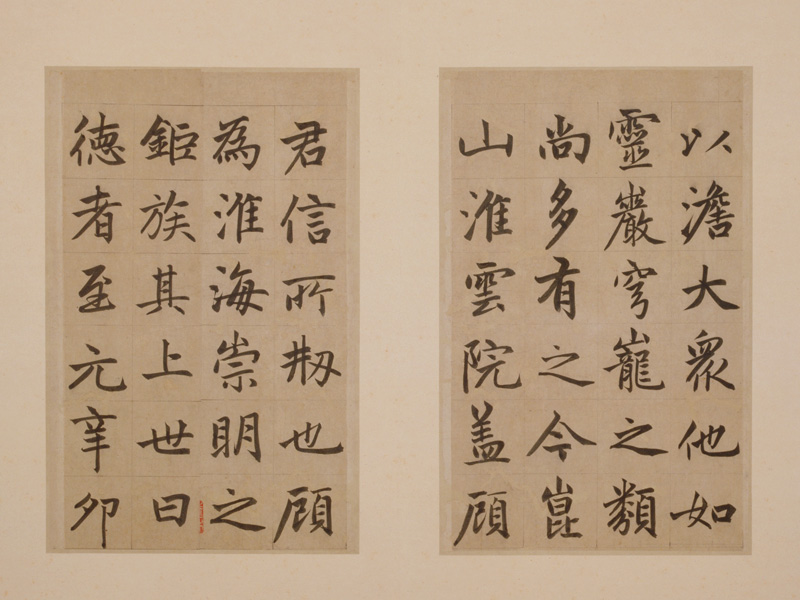 以澹大眾他如
靈巖穹巃之類
尚多有之今崑
山淮雲院盖顧
君信所剏也顧
為淮海崇明之
鉅族其上世曰
德者至元辛卯